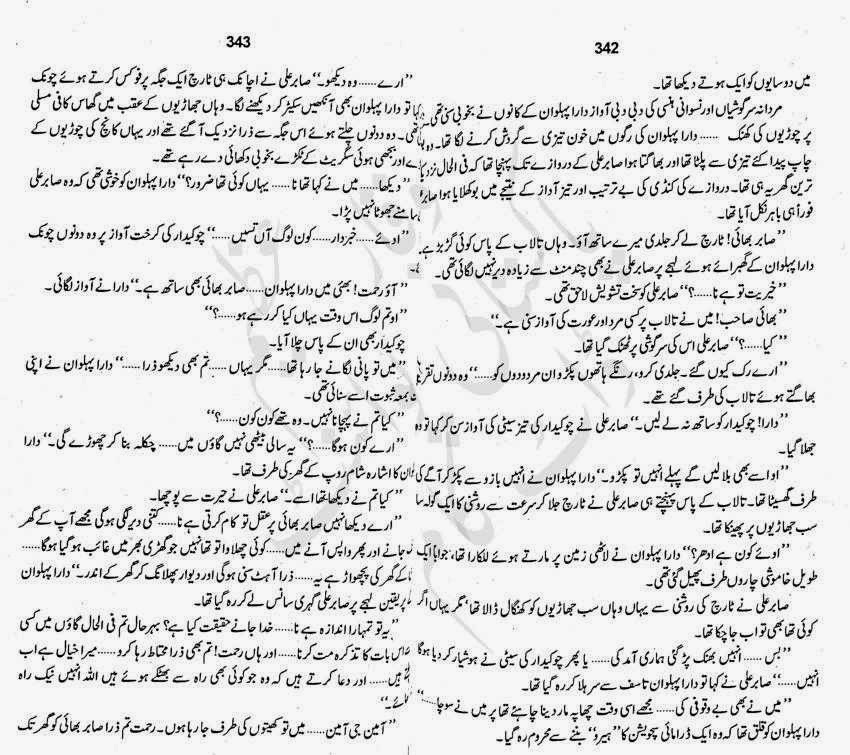 342
میں دو سایوں کو ایک ہوتے دیکھا تھا۔
مردانہ سرگوشیاں اور نسوانی ہنسی کی دبی دبی آواز دارا پہلوان کے کانوں نے بخوبی سنی تھی۔
پر چوڑیوں کی کھنک ...... دارا پہلوان کی رگوں میں خون تیزی سے گردش کرنے لگا تھا۔ دو
چاپ پیدا کئے تیزی سے پلٹا تھا اور بھاگتا ہوا صابر علی کے دروازے تک پہنچا تھا کہ فی الحال نزد
ترین گھر یہ ہی تھا۔ دروازے کی کنڈی کی بے ترتیب اور تیز آواز کے نتیجے میں بوکھلایا ہوا صابر
فوراً ہی باہر نکل آیا تھا۔
’’صابر بھائی! ٹارچ لے کر جلدی میرے ساتھ آؤ۔ وہاں تالاب کے پاس کوئی گڑبڑ ہے۔
دارا پہلوان کے گھبرائے ہوئے لہجے پر صابر علی نے بھی چند منٹ سے زیادہ دیر نہیں لگائی تھی۔
’’خیریت تو ہے نا......؟‘‘ صابر علی کو سخت تشویش لاحق تھی۔
’’بھائی صاحب! میں نے تالاب پر کسی مرد اور عورت کی آواز سنی ہے۔‘‘
’’کیا......؟‘‘ صابر علی اس کی سرگوشی پر ٹھنک گیا تھا۔
’’ارے رک کیوں گئے۔ جلدی کرو، رنگے ہاتھوں پکڑو ان مردودوں کو......‘‘ وہ دونوں تقر
بھاگتے ہوئے تالاب کی طرف گئے تھے۔
’’دارا! چوکیدار کو ساتھ نہ لے لیں۔‘‘ صابر علی نے چوکیدار کی تیز سیٹی کی آواز سن کر کہا تو وہ
جھلا گیا۔
’’او اسے بھی بلا لیں گے پہلے انہیں تو پکڑو۔‘‘ دارا پہلوان نے انہیں بازو سے پکڑ کر آگے کی
طرف گھسیٹا تھا۔ تالاب کے پاس پہنچتے ہی صابر علی نے ٹارچ جلا کر سرعت سے روشنی کا ایک گولہ سا
سب جھاڑیوں پر پھینکا تھا۔
’’اوئے کون ہے ادھر؟‘‘ دارا پہلوان نے لاٹھی زمین پر مارتے ہوئے للکارا تھا، جواباً ایک
طویل خاموشی چاروں طرف پھیل گئی تھی۔
صابر علی نے ٹارچ کی روشنی سے یہاں وہاں سب جھاڑیوں کو کھنگال ڈالا تھا‘ مگر یہاں اگر
کوئی تھا بھی تو اب جا چکا تھا۔
’’بس ...... انہیں بھنک پڑ گئی ہماری آمد کی...... یا پھر چوکیدار کی سیٹی نے ہوشیار کر دیا ہوگا
انہیں......‘‘ صابر علی نے کہا تو دارا پہلوان تاسف سے سر ہلا کر رہ گیا تھا۔
’’میں نے بھی بے وقوفی کی...... مجھے اسی وقت چھاپہ مار دینا چاہئے تھا پر میں نے سوچا......‘‘
دارا پہلوان کو قلق تھا کہ وہ ایک ڈرامائی سچویشن کا ’’ہیرو‘‘ بننے سے محروم رہ گیا۔
343
’’ارے...... وہ دیکھو۔‘‘ صابر علی نے اچانک ہی ٹارچ ایک جگہ پر فوکس کرتے ہوئے چونک
کہا تو دارا پہلوان بھی آنکھیں سکیڑ کر دیکھنے لگا۔ وہاں جھاڑیوں کے عقب میں گھاس کافی مسلی
تھی۔ وہ دونوں چلتے ہوئے اس جگہ سے ذرا نزدیک آ گئے تھے اور یہاں کانچ کی چوڑیوں کے
ے اور بجھی ہوئی سگریٹ کے ٹکڑے بخوبی دکھائی دے رہے تھے۔
’’دیکھا...... میں نے کہا تھا نا...... یہاں کوئی تھا ضرور؟‘‘ دارا پہلوان کو خوشی تھی کہ وہ صابر علی
سامنے جھوٹا نہیں پڑا۔
’’اوئے...... خبردار...... کون لوگ آں تسیں......‘‘ چوکیدار کی کرخت آواز پر وہ دونوں چونک
’’آؤ رحمت! بھئی میں دارا پہلوان...... صابر بھائی بھی ساتھ ہے۔‘‘ دارا نے آواز لگائی۔
’’او تم لوگ اس وقت یہاں کیا کر رہے ہو......؟‘‘
چوکیدار بھی ان کے پاس چلا آیا۔
’’میں تو پانی لگانے جا رہا تھا...... مگر یہاں...... تم بھی دیکھو ذرا......‘‘ دارا پہلوان نے اپنی
بمعہ ثبوت اسے سنائی تھی۔
’’کیا تم نے پہچانا نہیں۔ وہ تھے کون کون......؟‘‘
’’ارے کون ہوگا......؟‘‘ یہ سالی بیٹھی نہیں گاؤں میں...... چنکلہ بنا کر چھوڑے گی۔‘‘ دارا
ان کا اشارہ شام روپ کے گھر کی طرف تھا۔
’’کیا تم نے دیکھا تھا اسے۔‘‘ صابر علی نے حیرت سے پوچھا۔
’’ارے دیکھا نہیں صابر بھائی پر عقل تو کام کرتی ہے نا...... کتنی دیر لگی ہوگی مجھے آپ کے گھر
جانے اور پھر واپس آنے میں...... کوئی چھلاوا تو تھا نہیں جو گھڑی بھر میں غائب ہو گیا ہوگا......
کے گھر کی پچھواڑ ہے یہ...... ذرا آہٹ سنی ہوگی اور دیوار پھلانگ کر گھر کے اندر۔‘‘ دارا پہلوان
یقین لہجے پر صابر علی گہری سانس لے کر رہ گیا تھا۔
’’یہ تو تمہارا اندازہ ہے نا...... خدا جانے حقیقت کیا ہے؟ بہرحال تم فی الحال گاؤں میں کسی
اس بات کا تذکرہ مت کرنا...... اور ہاں رحمت! تم بھی ذرا محتاط رہا کرو...... میرا خیال ہے اب
ہیں...... اور دعا کرتے ہیں کہ وہ جو کوئی بھی راہ سے بھٹکے ہوئے ہیں اللہ انہیں نیک راہ
ئے۔‘‘
’’آمین جی آمین...... میں تو کھیتوں کی طرف جا رہا ہوں۔ رحمت تم ذرا صابر بھائی کو گھر تک